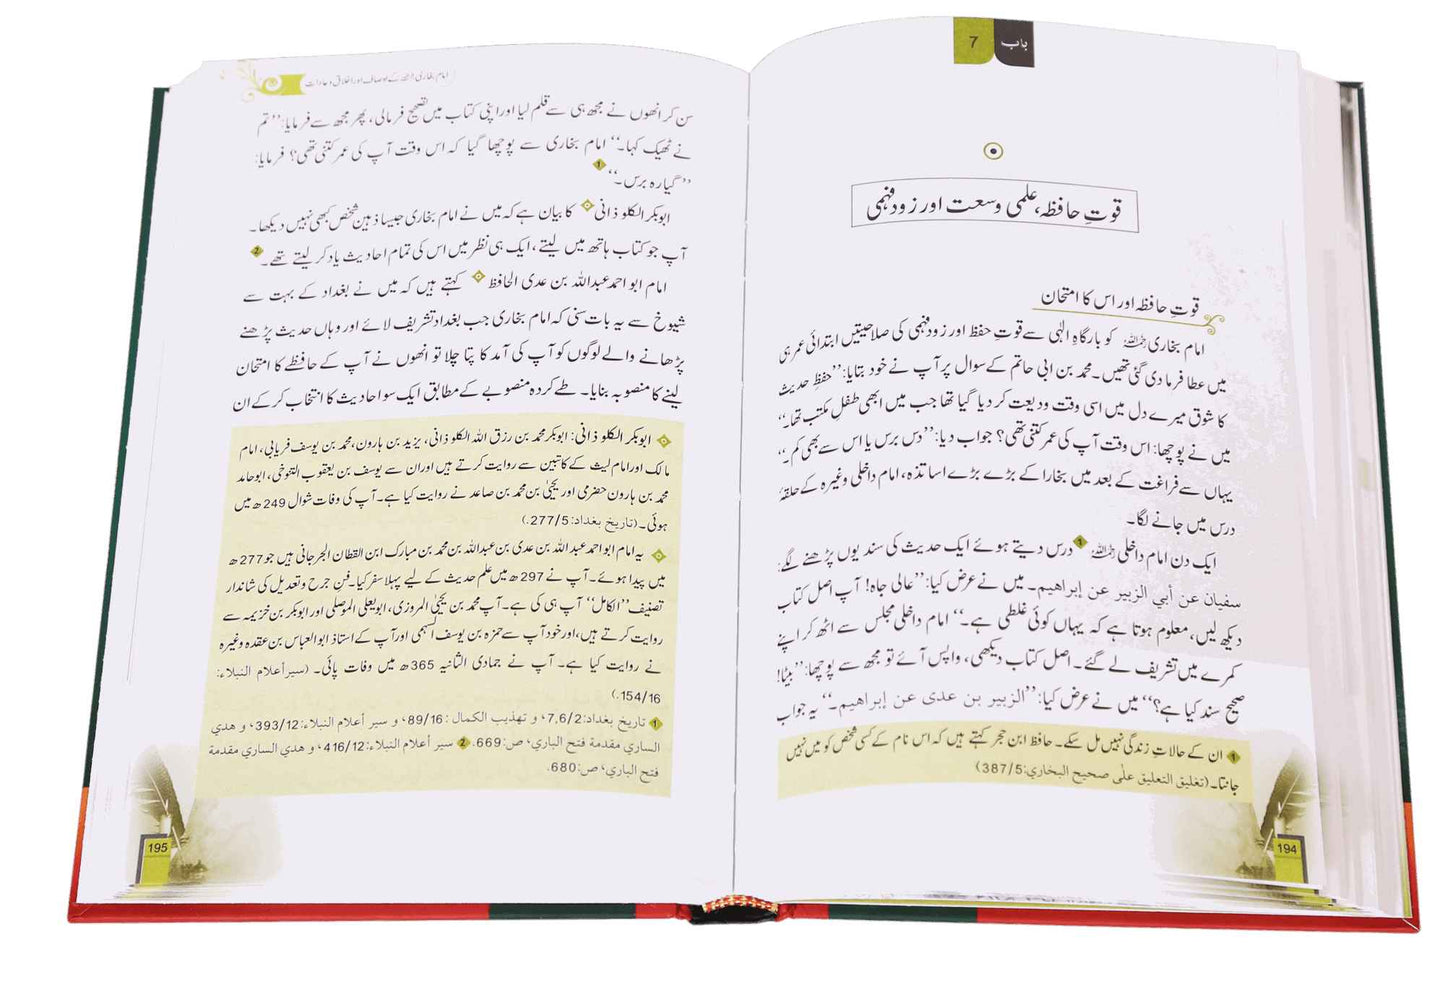 باب 7
قوتِ حافظہ، علمی وسعت اور زود فہمی
قوتِ حافظہ اور اس کا امتحان
امام بخاری رحمہ اللہ کو بارگاہِ الٰہی سے قوتِ حفظ اور زود فہمی کی صلاحیتیں ابتدائی عمر ہی
میں عطا فرما دی گئی تھیں۔ محمد بن ابی حاتم کے سوال پر آپ نے خود بتایا: ’’حفظ حدیث
کا شوق میرے دل میں اسی وقت ودیعت کر دیا گیا تھا جب میں ابھی طفلِ مکتب تھا۔‘‘
میں نے پوچھا: اس وقت آپ کی عمر کتنی تھی؟ جواب دیا: ’’دس برس یا اس سے بھی کم۔‘‘
یہاں سے فراغت کے بعد میں بخارا کے بڑے بڑے اساتذہ، امام داخلی وغیرہ کے حلقۂ
درس میں جانے لگا۔
ایک دن امام داخلی رحمہ اللہ 1 درس دیتے ہوئے ایک حدیث کی سند یوں پڑھنے لگے:
سفيان عن أبي الزبير عن إبراهيم۔ میں نے عرض کیا: ’’عالی جاہ! آپ اصل کتاب
دیکھ لیں، معلوم ہوتا ہے کہ یہاں کوئی غلطی ہے۔‘‘ امام داخلی مجلس سے اٹھ کر اپنے
کمرے میں تشریف لے گئے۔ اصل کتاب دیکھی، واپس آئے تو مجھ سے پوچھا: ’’بیٹا!
صحیح سند کیا ہے؟‘‘ میں نے عرض کیا: ’’الزبير بن عدى عن إبراهيم۔‘‘ یہ جواب
1 ان کے حالاتِ زندگی نہیں مل سکے۔ حافظ ابن حجر کہتے ہیں کہ اس نام کے کسی شخص کو میں نہیں
جانتا۔ (تغليق التعليق على صحيح البخاري: 387/5)
194
امام بخاری رحمہ اللہ کے اوصاف اور اخلاق و عادات
سن کر انھوں نے مجھ ہی سے قلم لیا اور اپنی کتاب میں تصحیح فرمالی، پھر مجھ سے فرمایا: ’’تم
نے ٹھیک کہا۔‘‘ امام بخاری سے پوچھا گیا کہ اس وقت آپ کی عمر کتنی تھی؟ فرمایا:
’’گیارہ برس۔‘‘ 1
ابوبکر الکلوذانی کا بیان ہے کہ میں نے امام بخاری جیسا ذہین شخص کبھی نہیں دیکھا۔
آپ جو کتاب ہاتھ میں لیتے، ایک ہی نظر میں اس کی تمام احادیث یاد کر لیتے تھے۔ 2
امام ابو احمد عبداللہ بن عدی الحافظ کہتے ہیں کہ میں نے بغداد کے بہت سے
شیوخ سے یہ بات سنی کہ امام بخاری جب بغداد تشریف لائے اور وہاں حدیث پڑھنے
پڑھانے والے لوگوں کو آپ کی آمد کا پتا چلا تو انھوں نے آپ کے حافظے کا امتحان
لینے کا منصوبہ بنایا۔ طے کردہ منصوبے کے مطابق ایک سو احادیث کا انتخاب کر کے ان
ابوبکر الکلوذانی: ابوبکر محمد بن رزق اللہ الکلوذانی، یزید بن ہارون، محمد بن یوسف فریابی، امام
مالک اور امام لیث کے کاتبین سے روایت کرتے ہیں اور ان سے یوسف بن یعقوب التنوخی، ابوحامد
محمد بن ہارون حضرمی اور یحیٰی بن محمد بن صاعد نے روایت کیا ہے۔ آپ کی وفات شوال 249ھ میں
ہوئی۔ (تاریخ بغداد: 277/5.)
یہ امام ابو احمد عبداللہ بن عدی بن عبداللہ بن محمد بن مبارک ابن القطان الجرجانی ہیں جو 277ھ
میں پیدا ہوئے۔ آپ نے 297ھ میں علم حدیث کے لیے پہلا سفر کیا۔ فن جرح و تعدیل کی شاندار
تصنیف ’’الکامل‘‘ آپ ہی کی ہے۔ آپ محمد بن یحیٰی المروزی، ابویعلی الموصلی اور ابوبکر بن خزیمہ سے
روایت کرتے ہیں، اور خود آپ سے حمزہ بن یوسف السہمی اور آپ کے استاذ ابوالعباس بن عقدہ وغیرہ
نے روایت کیا ہے۔ آپ نے جمادی الثانیہ 365ھ میں وفات پائی۔ (سير أعلام النبلاء:
154/16.)
1 تاريخ بغداد: 7,6/2، و تهذيب الكمال: 89/16، و سير أعلام النبلاء: 393/12، و هدي
الساري مقدمة فتح الباري، ص: 669. 2 سير أعلام النبلاء: 416/12، و هدي الساري مقدمة
فتح الباري، ص: 680.
195